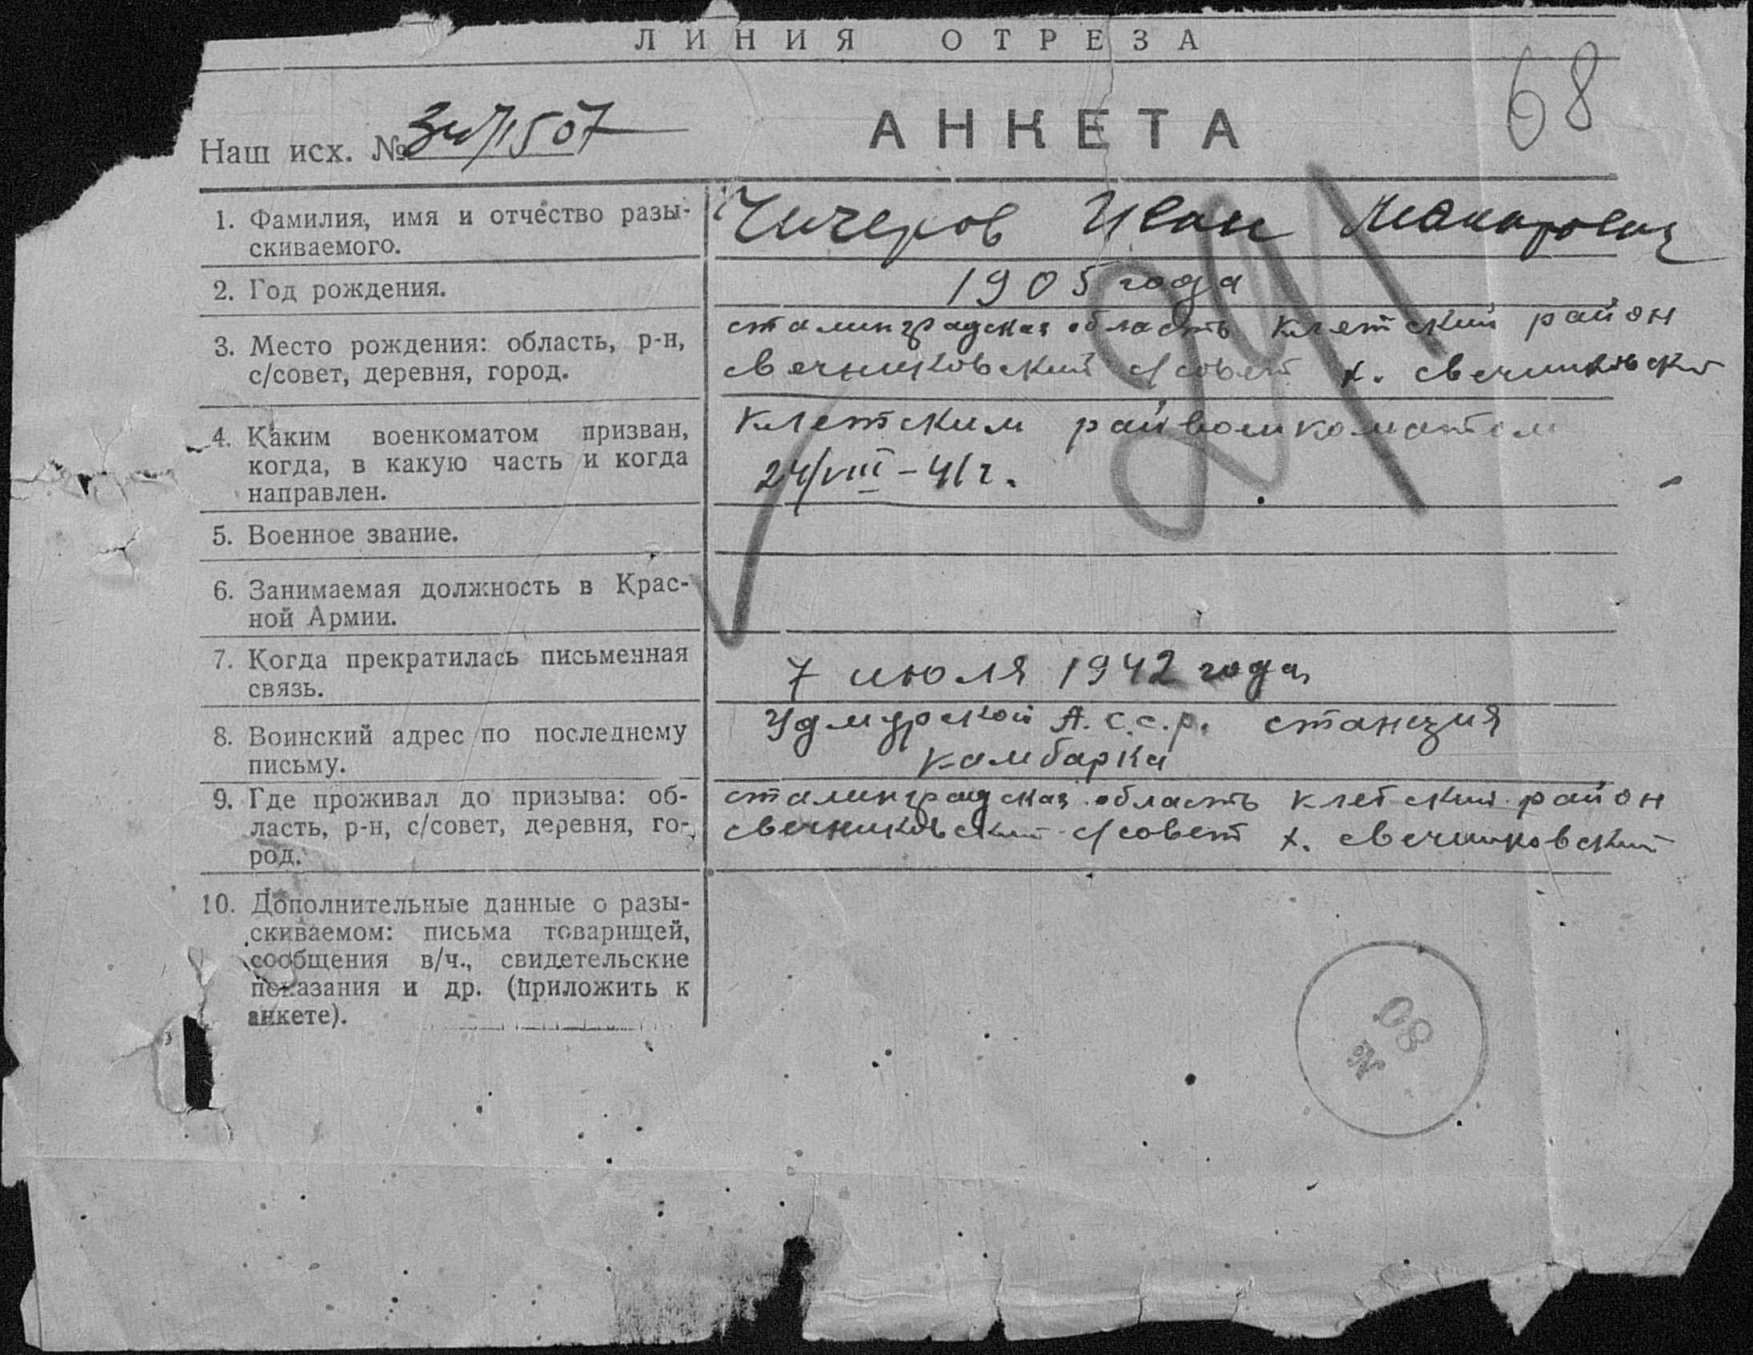 ЛИНИЯ ОТРЕЗА
68
Наш исх. № 1507
АНКЕТА
1. Фамилия, имя и отчество разы-
скиваемого.
Чичеров Иван Макарович
2. Год рождения.
1905 года
3. Место рождения: область, р-н,
с/совет, деревня, город.
сталинградская область клетский район
свечниковский с/совет х. свечниковский
4. Каким военкоматом призван,
когда, в какую часть и когда
направлен.
клетским райвоенкоматом
24/VIII-41г.
291
5. Военное звание.
6. Занимаемая должность в Крас-
ной Армии.
7. Когда прекратилась письменная
связь.
7 июля 1942 года
8. Воинский адрес по последнему
письму.
Удмурской А.С.С.Р. станция
камбарка
9. Где проживал до призыва: об-
ласть, р-н, с/совет, деревня, го-
род.
сталинградская область клетский район
свечниковский с/совет х. свечниковский
10. Дополнительные данные о разы-
скиваемом: письма товарищей,
сообщения в/ч., свидетельские
показания и др. (приложить к
анкете).
№ 80